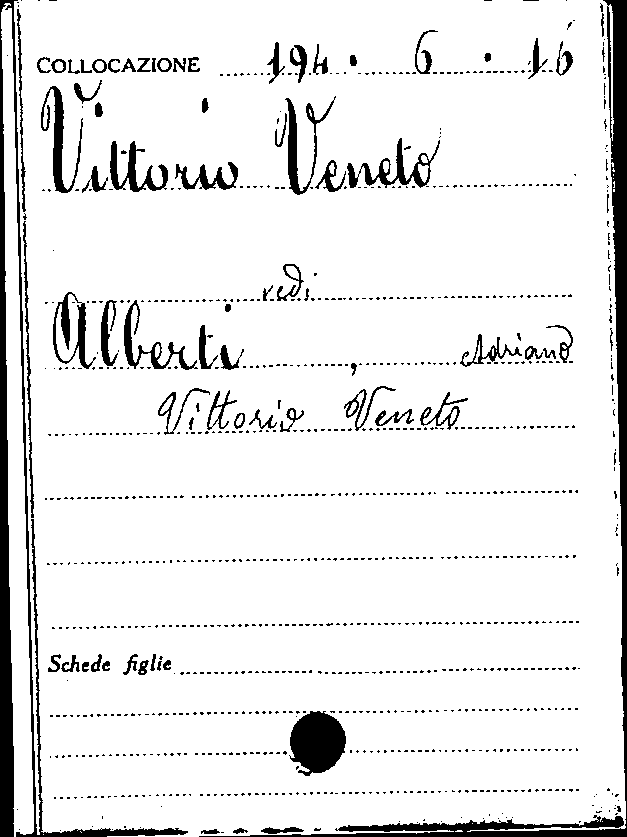 COLLOCAZIONE 194 . 6 . 16
Vittorio Veneto
vedi
Alberti , Adriano
Vittorio Veneto
Schede figlie